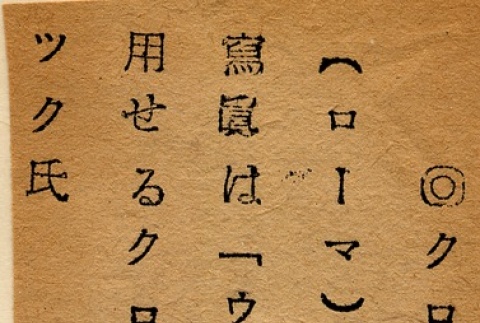 ◎クロ
(ローマ)
寫眞は「ウ
用せるクロ
ツク氏